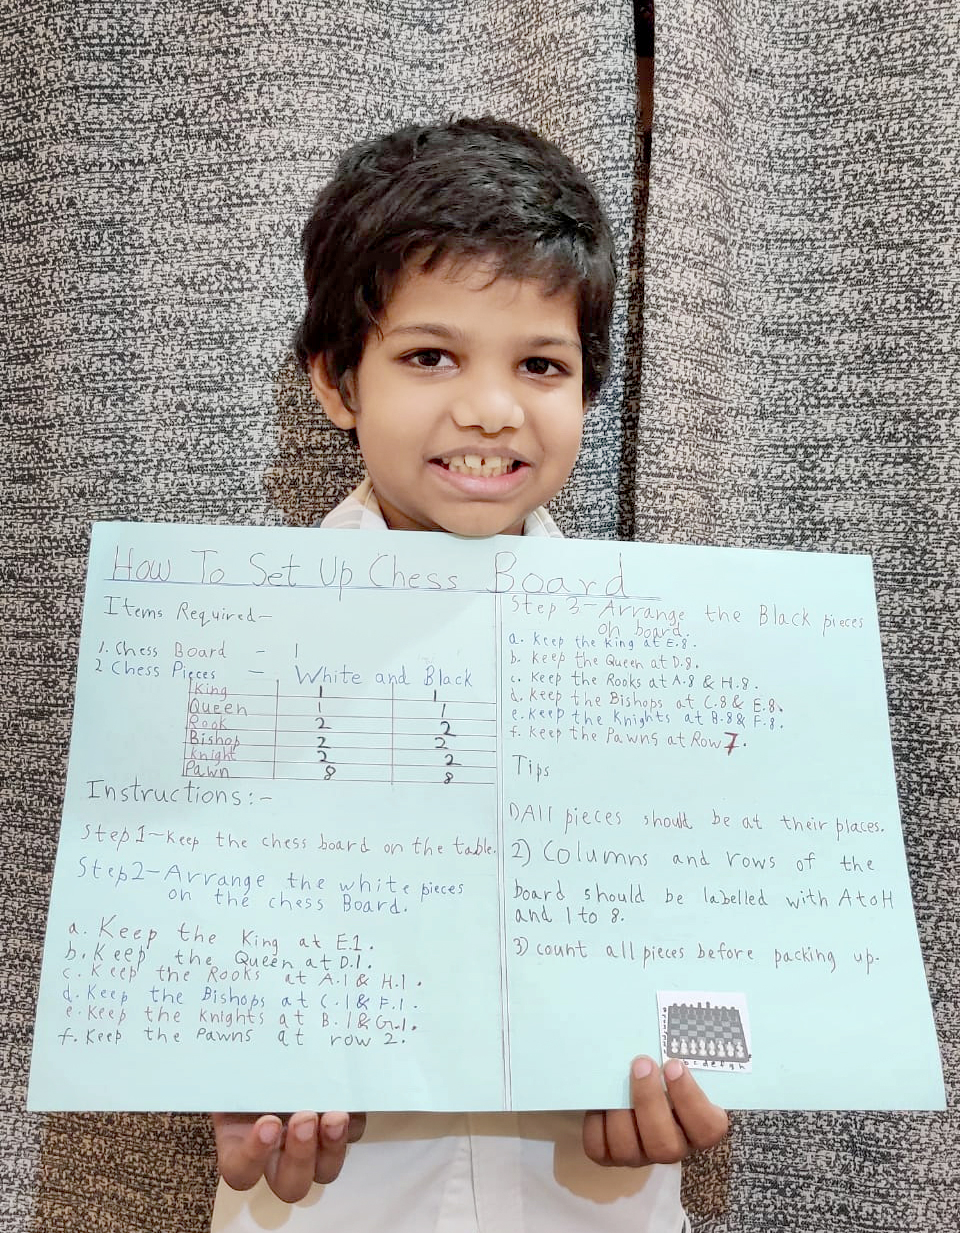 How To Set Up Chess Board
Items Required-
1. Chess Board - 1
2 Chess Pieces - White and Black
King 1 1
Queen 1 1
Rook 2 2
Bishop 2 2
Knight 2 2
Pawn 8 8
Instructions:-
Step1-Keep the chess board on the table.
Step2-Arrange the white pieces
on the chess Board.
a. Keep the King at E.1.
b. Keep the Queen at D.1.
c. Keep the Rooks at A.1 & H.1.
d. Keep the Bishops at C.1 & F.1.
e. Keep the Knights at B.1 & G.1.
f. Keep the Pawns at row 2.
Step 3-Arrange the Black pieces
on board.
a. Keep the King at E.8.
b. Keep the Queen at D.8.
c. Keep the Rooks at A.8 & H.8.
d. Keep the Bishops at C.8 & E.8.
e. Keep the Knights at B.8 & F.8.
f. Keep the Pawns at Row 7.
Tips
1) All pieces should be at their places.
2) Columns and rows of the
board should be labelled with A to H
and 1 to 8.
3) count all pieces before packing up.
b c d e f g h